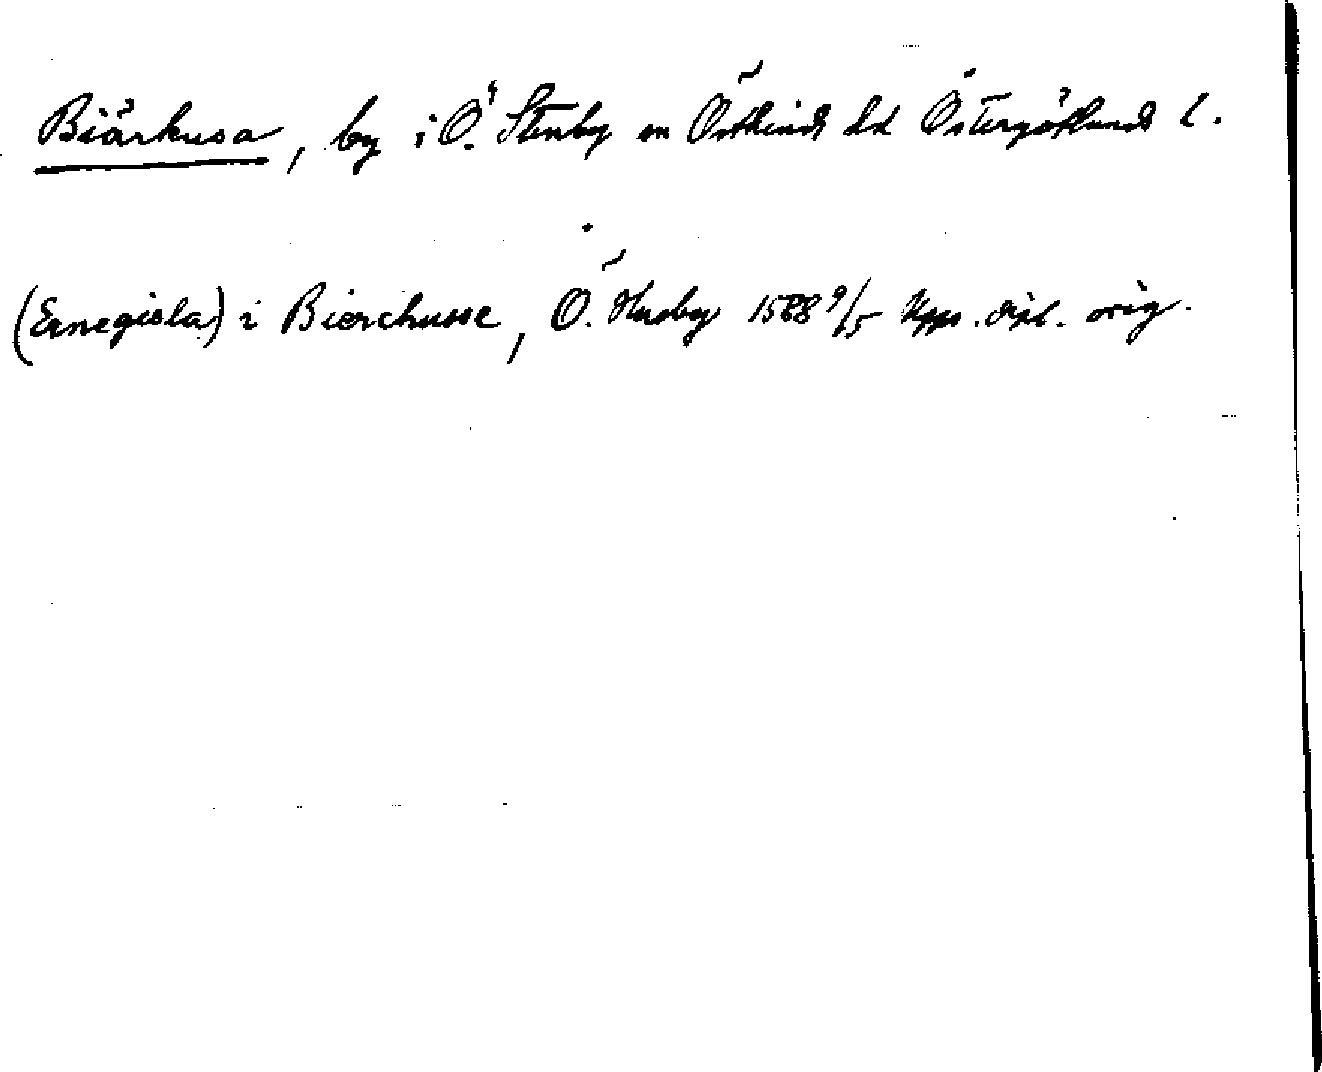 Biärkusa, by i Ö. Stenby sn Östkinds hd Östergötlands l.
(Ernegisla) i Bierchusse, Ö. Husby 1588 9/5 Upps. dipl. orig.